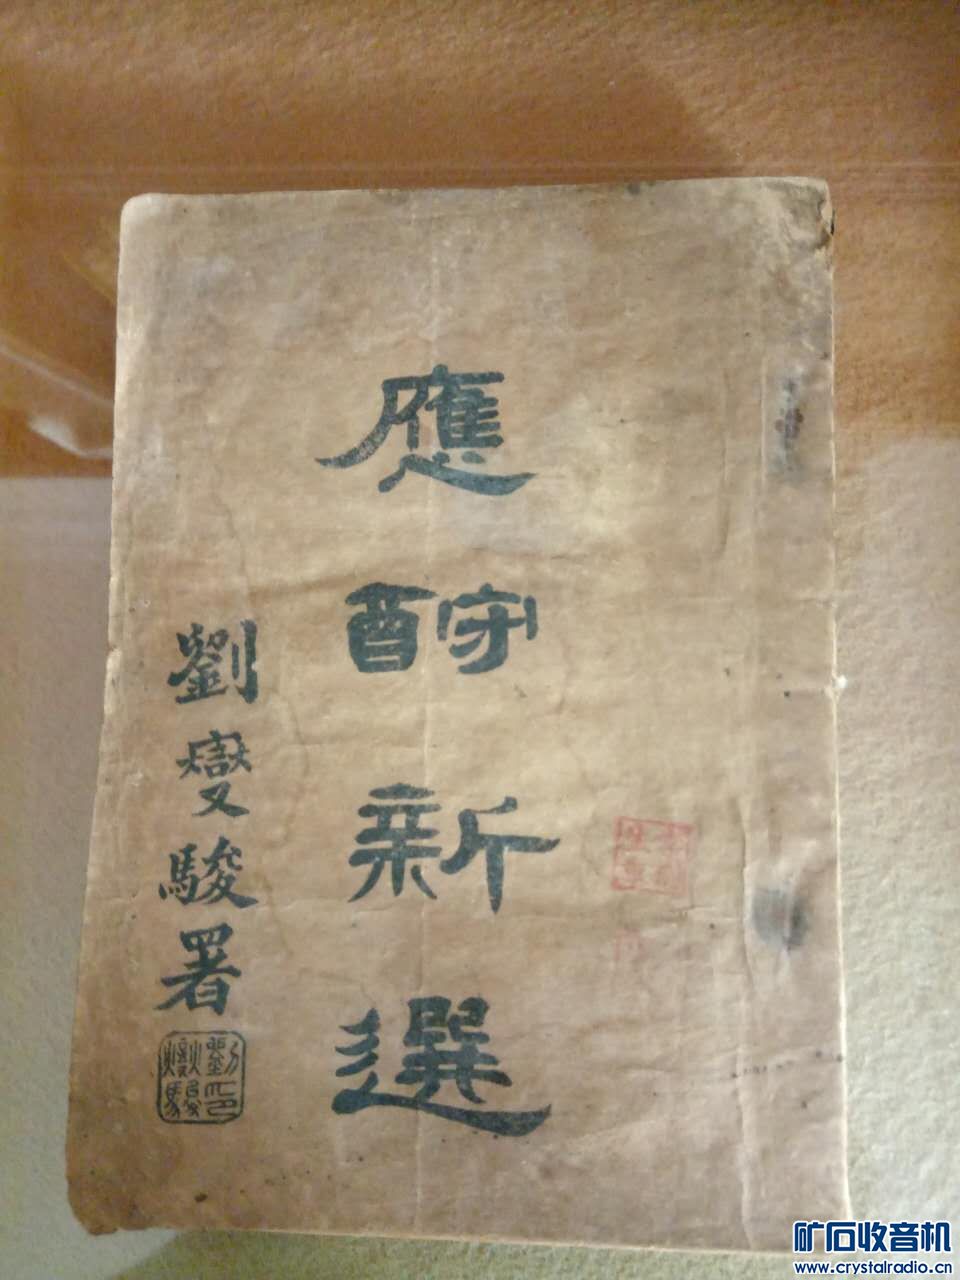 應酧新選
劉燮駿署
劉印燮駿
矿石收音机
www.crystalradio.cn